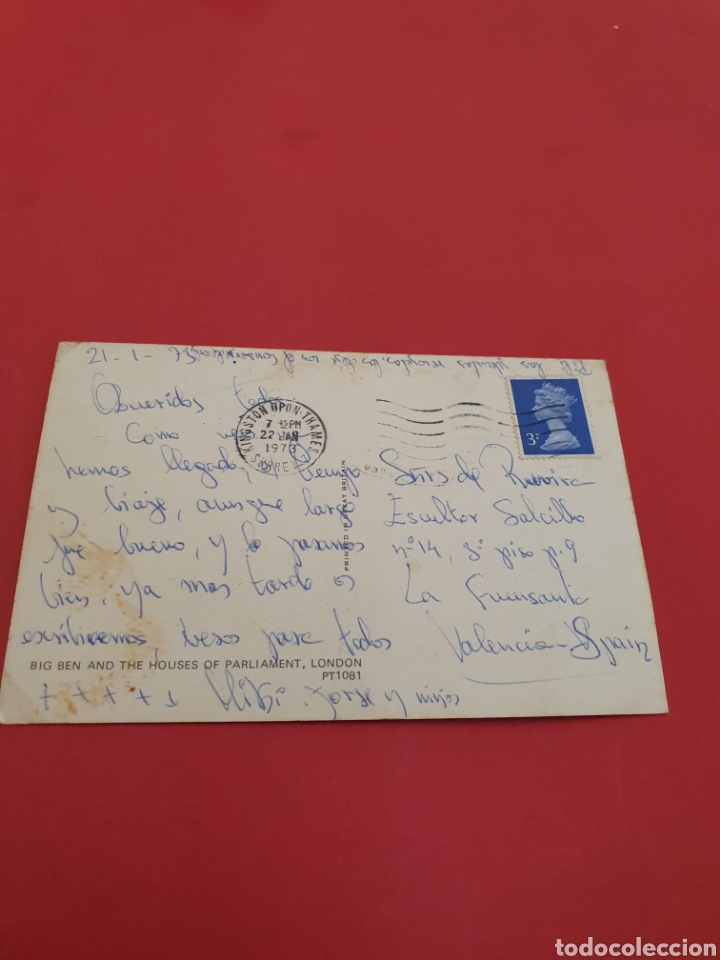 21-1-
Queridos todos
Como
hemos llegado,
y viaje, aunque largo
fue bueno, y lo pasamos
bien, ya mas tarde os
escribiremos, besos para todos
y Jorge
+ + + + +
KINGSTON UPON THAMES
7 15PM
22 JAN
1973
SURREY
3P
PRINTED IN GREAT BRITAIN
Srs de
Escultor Salcillo
nº 14, 3º piso p. 9
La Fuensanta
Valencia - Spain
BIG BEN AND THE HOUSES OF PARLIAMENT, LONDON
PT1081
todocoleccion